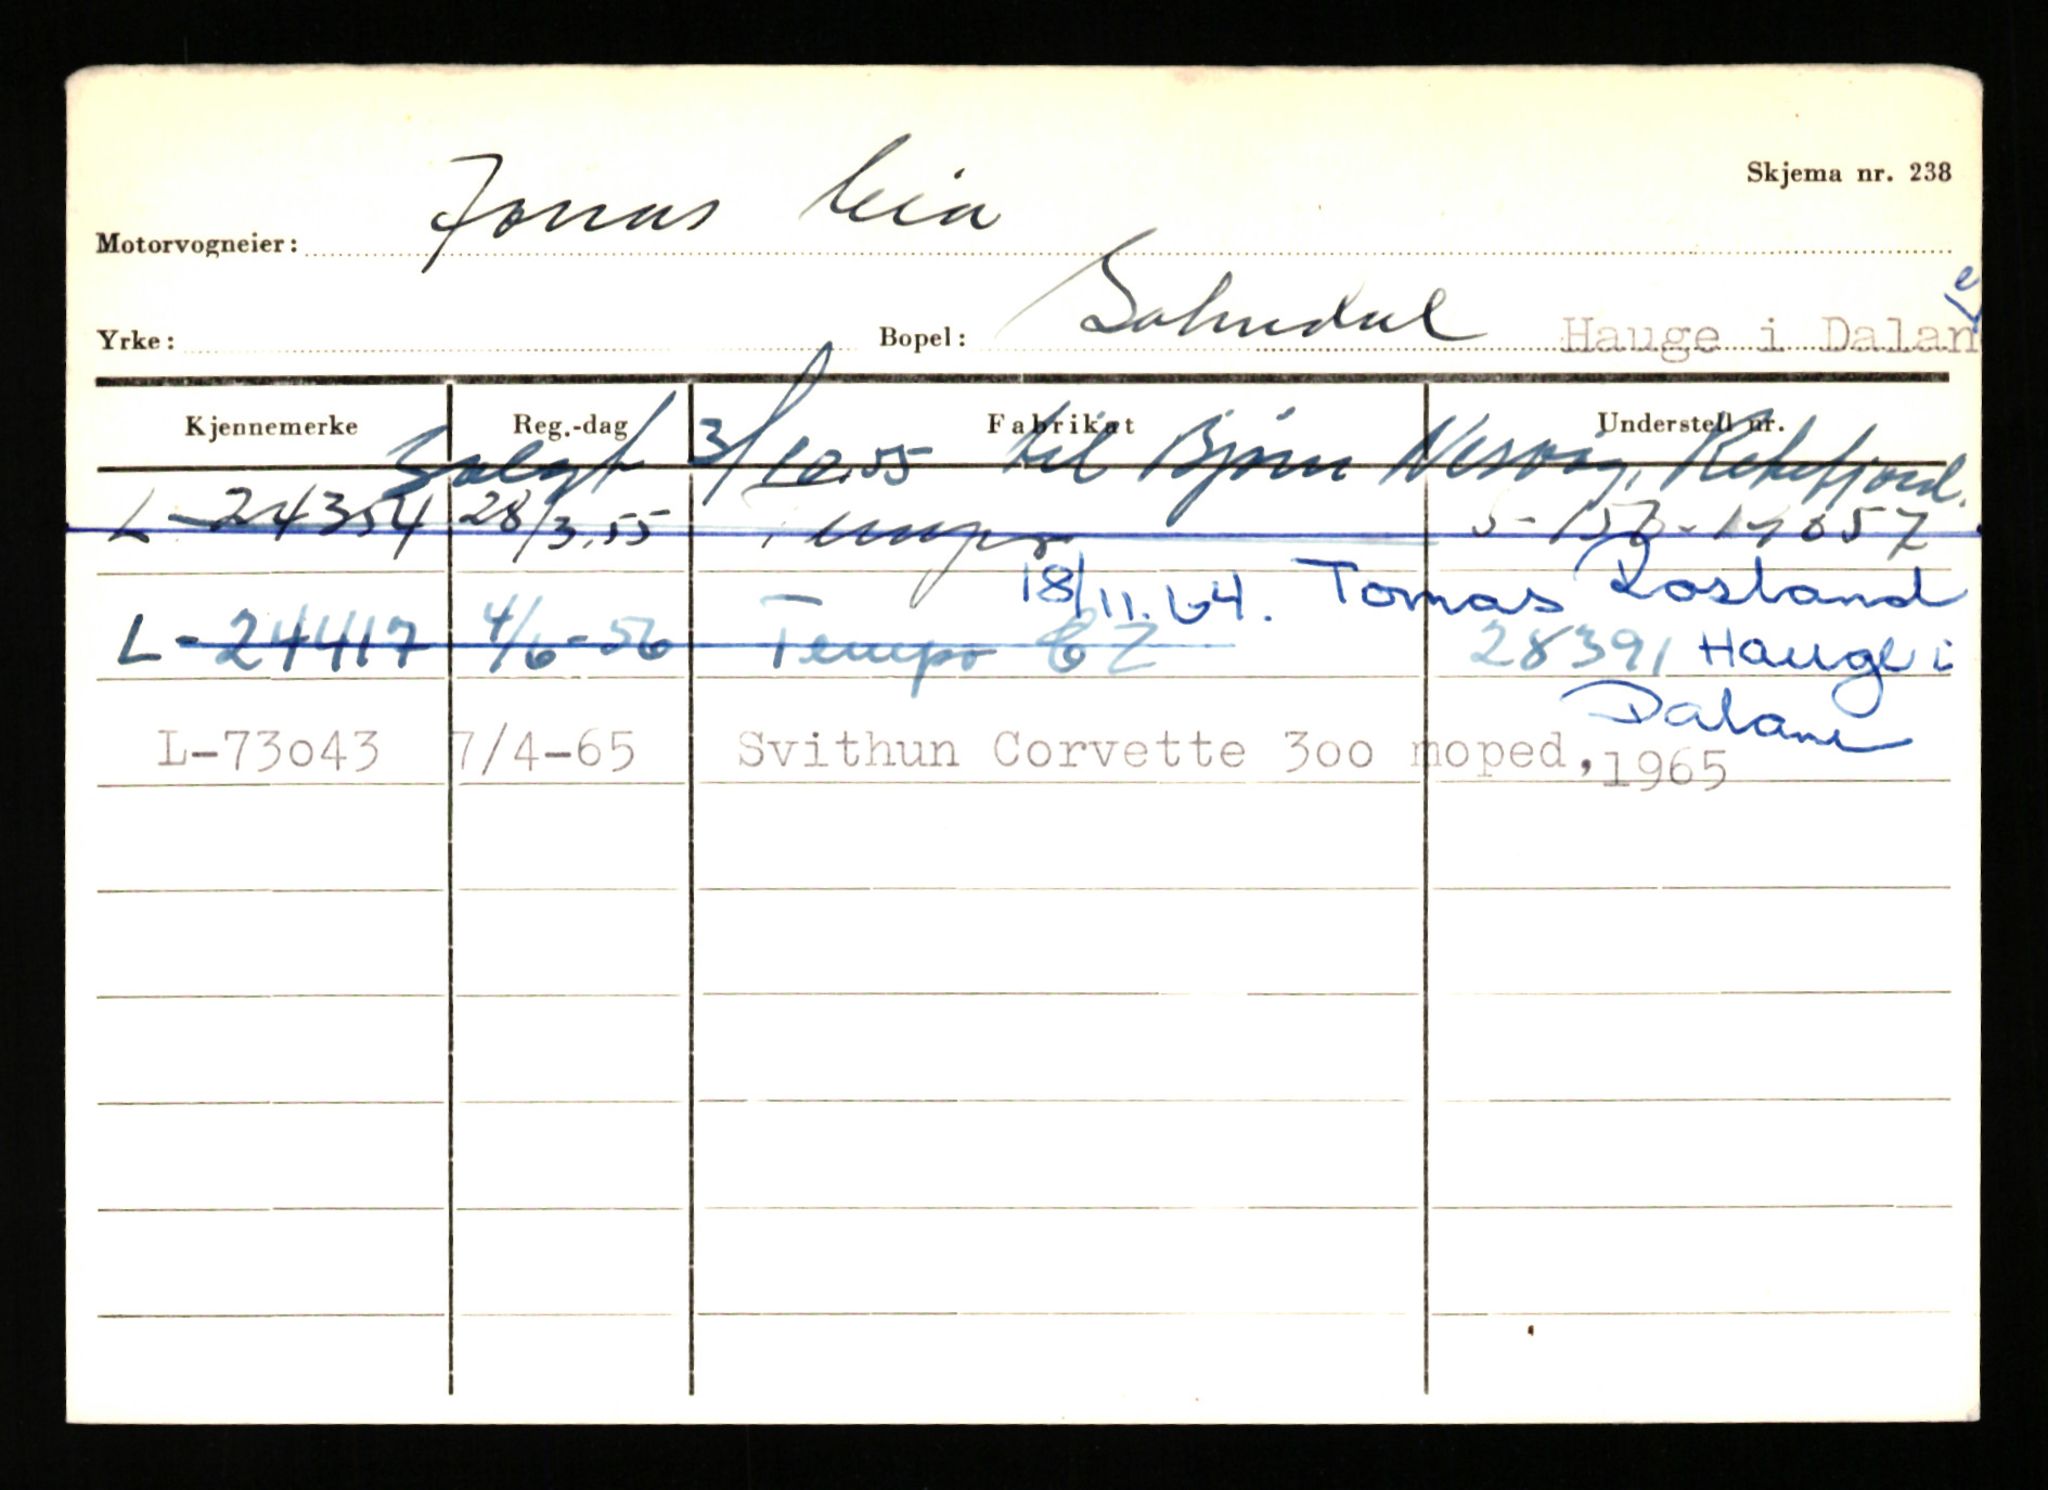 Skjema nr. 238
Motorvogneier: Jonas Eia
Yrke: Bopel: Sokndal Hauge i Dalane
Kjennemerke Reg.-dag Fabrikat Understell nr.
Solgt 3/10.55 til Bjørn Nesvåg, Rekefjord.
L-24354 28/3.55 Tempo
18/11.64. Tomas Rosland
L-24417 4/6-56 Tempo 28391 Hauge i
Dalane
L-73o43 7/4-65 Svithun Corvette 3oo moped, 1965